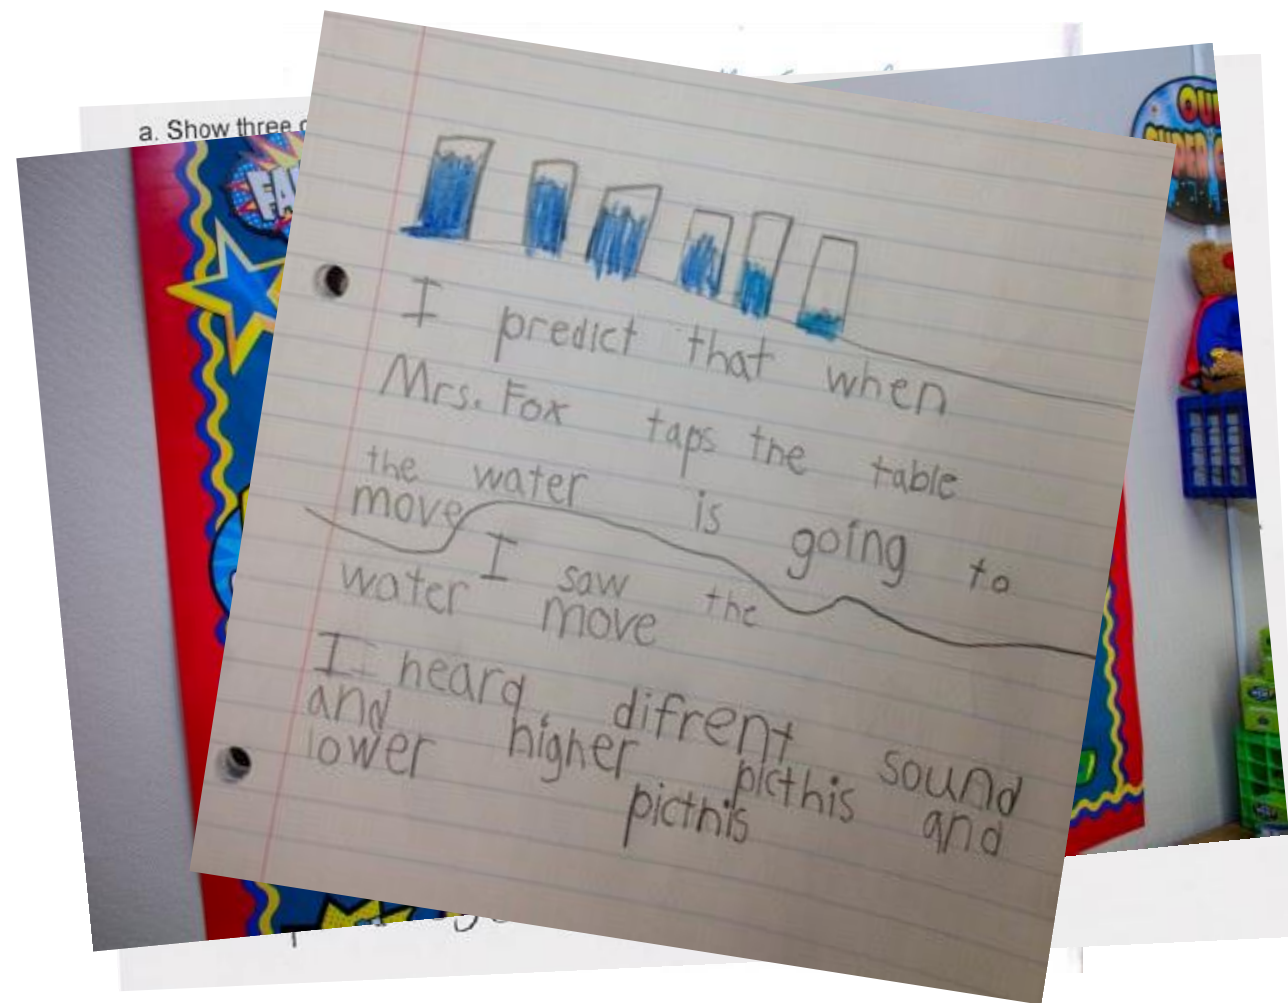 a. Show three
FA
OU
SUPER
I predict that when
Mrs. Fox taps the table
the water is going to
move
I saw the
water move
I heard difrent sound
and higher picthis and
lower picthis